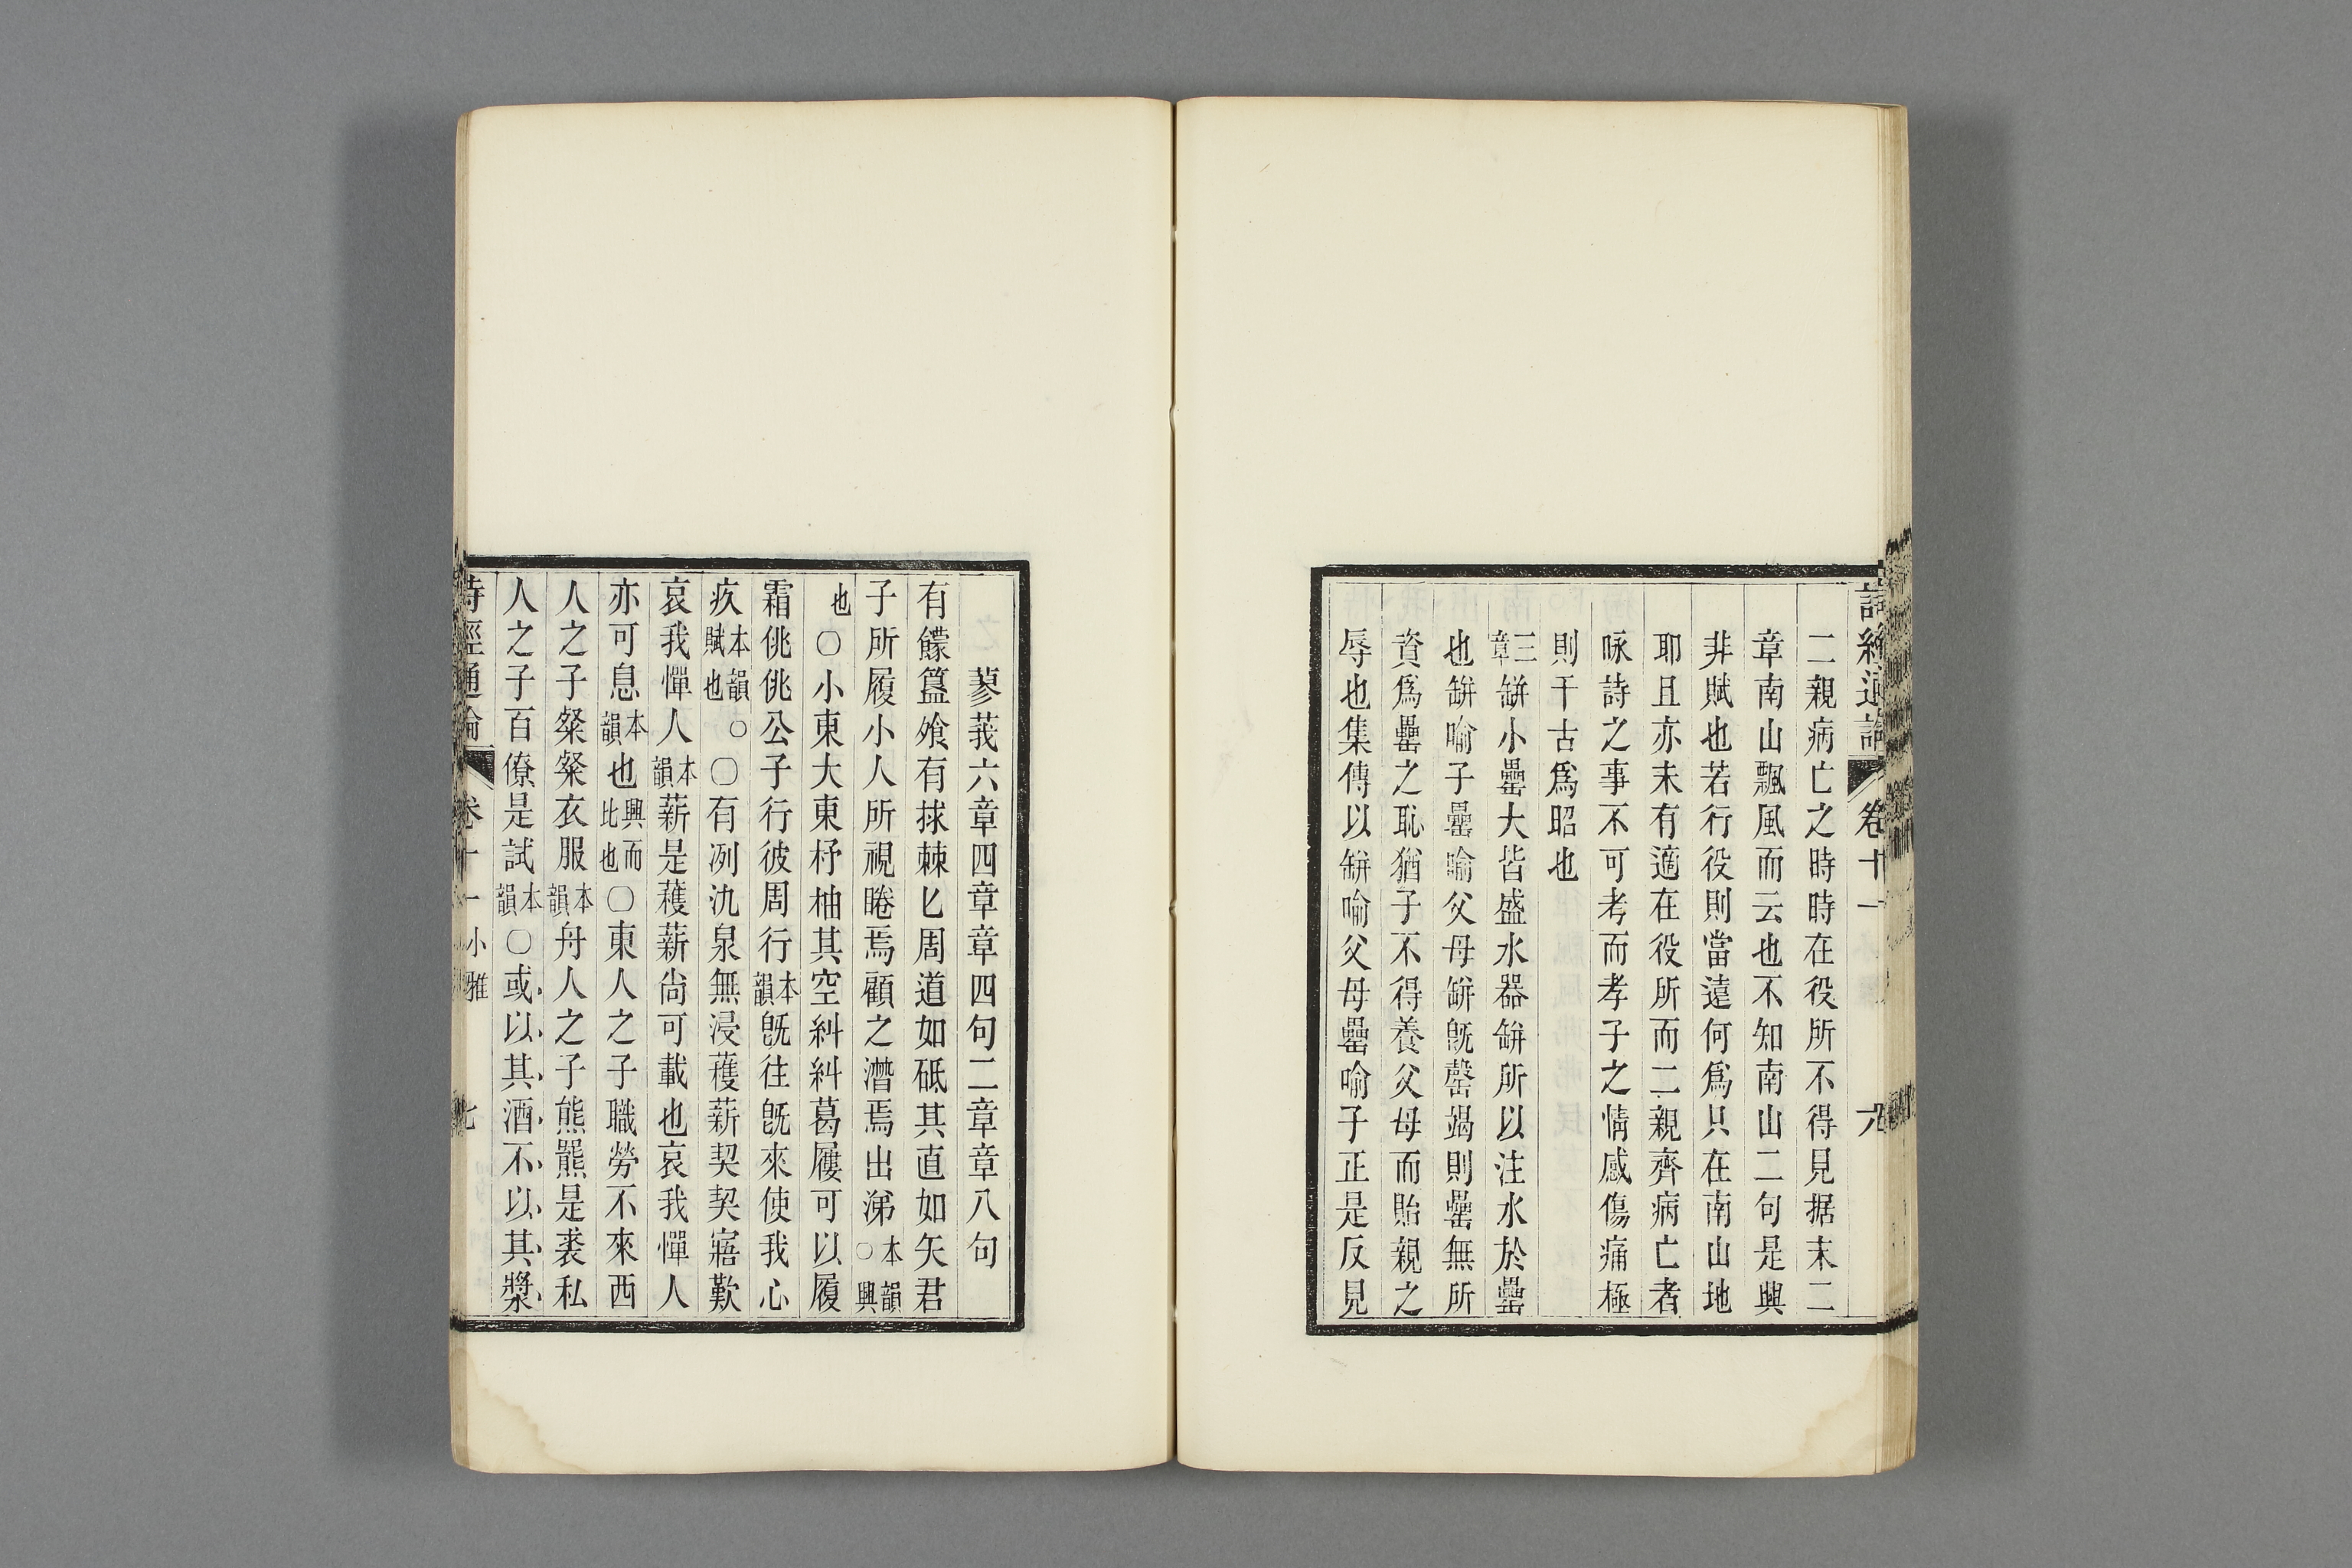 詩經通論 卷十一
二親病亡之時時在役所不得見据末二
章南山飄風而云也不知南山二句是興
非賦也若行役則當遠何爲只在南山地
耶且亦未有適在役所而二親齊病亡者
咏詩之事不可考而孝子之情感傷痛極
則千古爲昭也
三章缾小罍大皆盛水器缾所以注水於罍
也缾喻子罍喻父母缾旣罄竭則罍無所
資爲罍之恥猶子不得養父母而貽親之
辱也集傳以缾喻父母罍喻子正是反見
蓼莪六章四章章四句二章章八句
有饛簋飧有捄棘匕周道如砥其直如矢君
子所履小人所視睠焉顧之潸焉出涕本韻○興
也○小東大東杼柚其空糾糾葛屨可以履
霜佻佻公子行彼周行本韻旣往旣來使我心
疚本韻賦也○○有冽氿泉無浸穫薪契契寤歎
哀我憚人本韻薪是穫薪尙可載也哀我憚人
亦可息本韻也興而比也○東人之子職勞不來西
人之子粲粲衣服本韻舟人之子熊羆是裘私
人之子百僚是試本韻○或以其酒不以其漿
詩經通論 卷十一 小雅 七